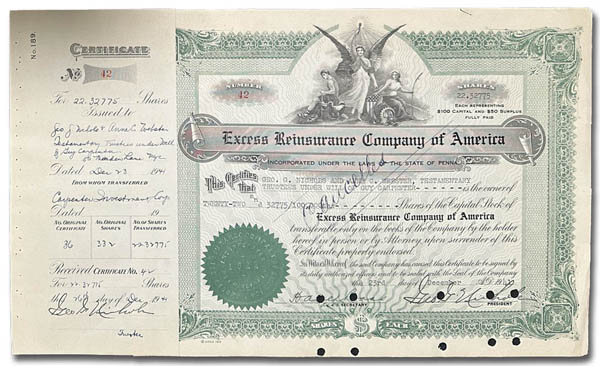 No. 189.
CERTIFICATE
No 42
For 22.32775 Shares
Issued to
Geo. G. Nichols & Anne C. Webster
Testamentary Trustees under Will
of Guy Carpenter
Dated Dec 23 1941
FROM WHOM TRANSFERRED
Carpenter Investment Corp.
Dated 19
NO. ORIGINAL CERTIFICATE
NO. ORIGINAL SHARES
NO. OF SHARES TRANSFERRED
36
22.32775
Received CERTIFICATE No. 42
For 22.32775 Shares
this day of Dec 1941
Trustee
NUMBER
42
SHARES
22.32775
EACH REPRESENTING
$100 CAPITAL AND $50 SURPLUS
FULLY PAID
Excess Reinsurance Company of America
INCORPORATED UNDER THE LAWS OF THE STATE OF PENNA.
Cancelled
This Certifies that
GEO. G. NICHOLS AND WEBSTER, TESTAMENTARY
TRUSTEES UNDER WILL GUY CARPENTER is the owner of
TWENTY-TWO & 32775/100,000 Shares of the Capital Stock of
Excess Reinsurance Company of America
transferable only on the books of the Company by the holder
hereof in person or by Attorney upon surrender of this
Certificate properly endorsed.
In Witness Whereof, the said Company has caused this Certificate to be signed by
its duly authorized officers and to be sealed with the Seal of the Company
this 23rd day of December A.D. 1941
SECRETARY
PRESIDENT
SHARES
$100
EACH